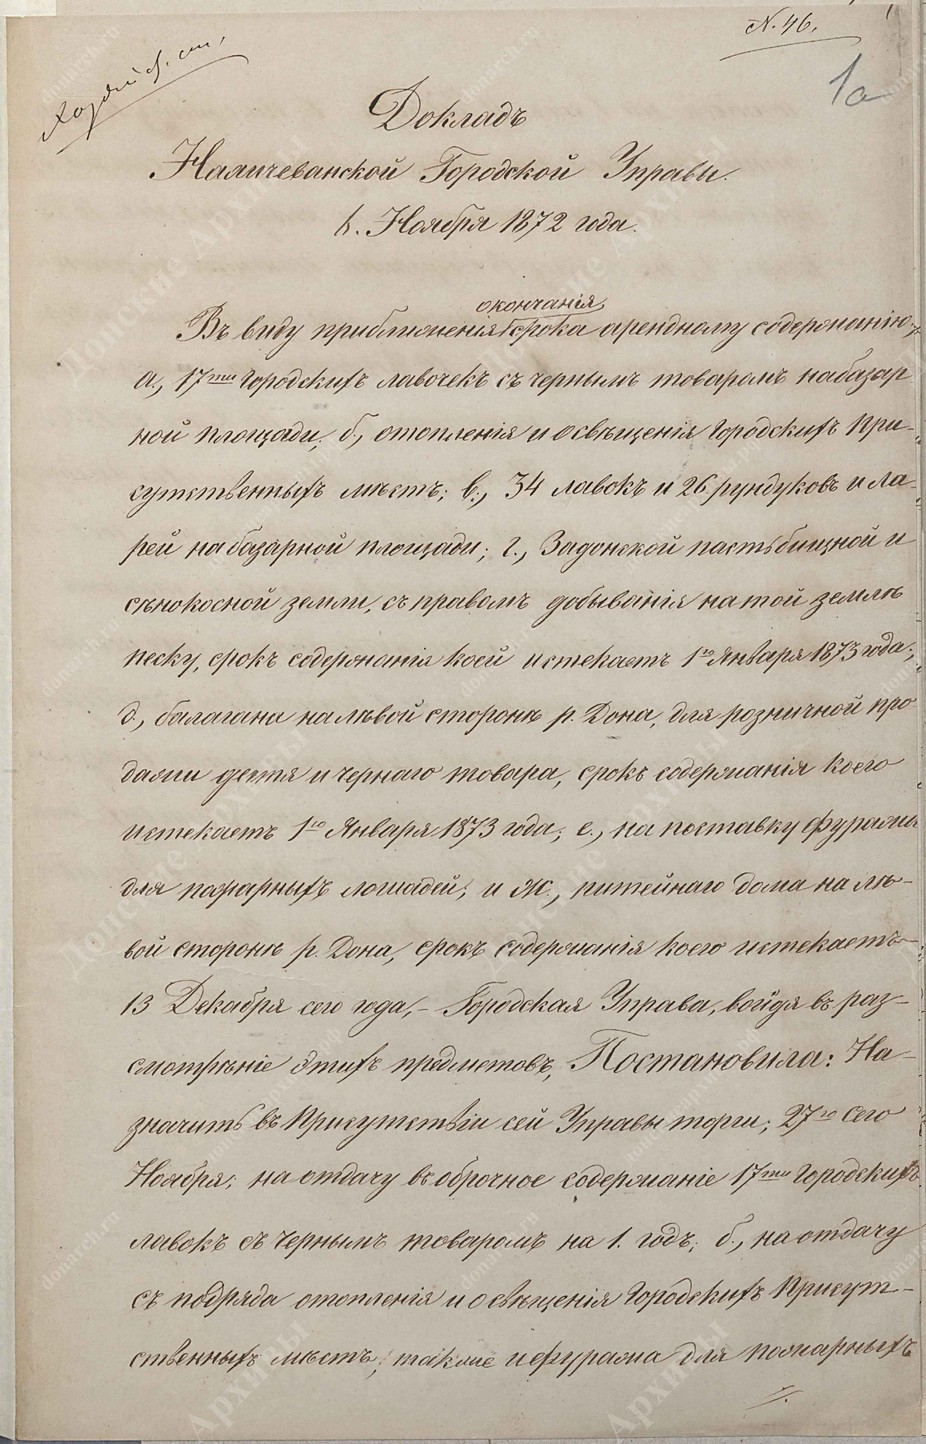 N. 46.
Хозяйст. ст.
1а
Докладъ
Нахичеванской Городской Управы.
Ноября 1872 года.
окончанія
Въ виду приближенія срока арендному содержанію:
а., 17ти Городскихъ лавочекъ съ чернымъ товаромъ на базар
ной площади; б., отопленія и освѣщенія Городскихъ При-
сутственныхъ мѣстъ; в., 34 лавокъ и 26 рундуковъ и ла-
рей на базарной площади; г., Задонской пастьбищной и
сѣнокосной земли, съ правомъ добыванія на той землѣ
песку, срокъ содержанія коей истекаетъ 1го Января 1873 года;
д., балагана на лѣвой сторонѣ р. Дона, для розничной про
дажи дегтя и чернаго товара, срокъ содержанія коего
истекаетъ 1го Января 1873 года; е., на поставку фуража
для пожарныхъ лошадей; и ж., питейнаго дома на лѣ-
вой сторонѣ р. Дона, срокъ содержанія коего истекаетъ
13 Декабря сего года, – Городская Управа, войдя въ раз-
смотрѣніе этихъ предметовъ, Постановила: На-
значить въ Присутствіи сей Управы торги; 27го сего
Ноября; на отдачу въ оброчное содержаніе 17ти Городскихъ
лавокъ съ чернымъ товаромъ на 1. годъ; б., на отдачу
съ подряда отопленія и освѣщенія Городскихъ Присут-
ственныхъ мѣстъ, также и фуража для пожарныхъ